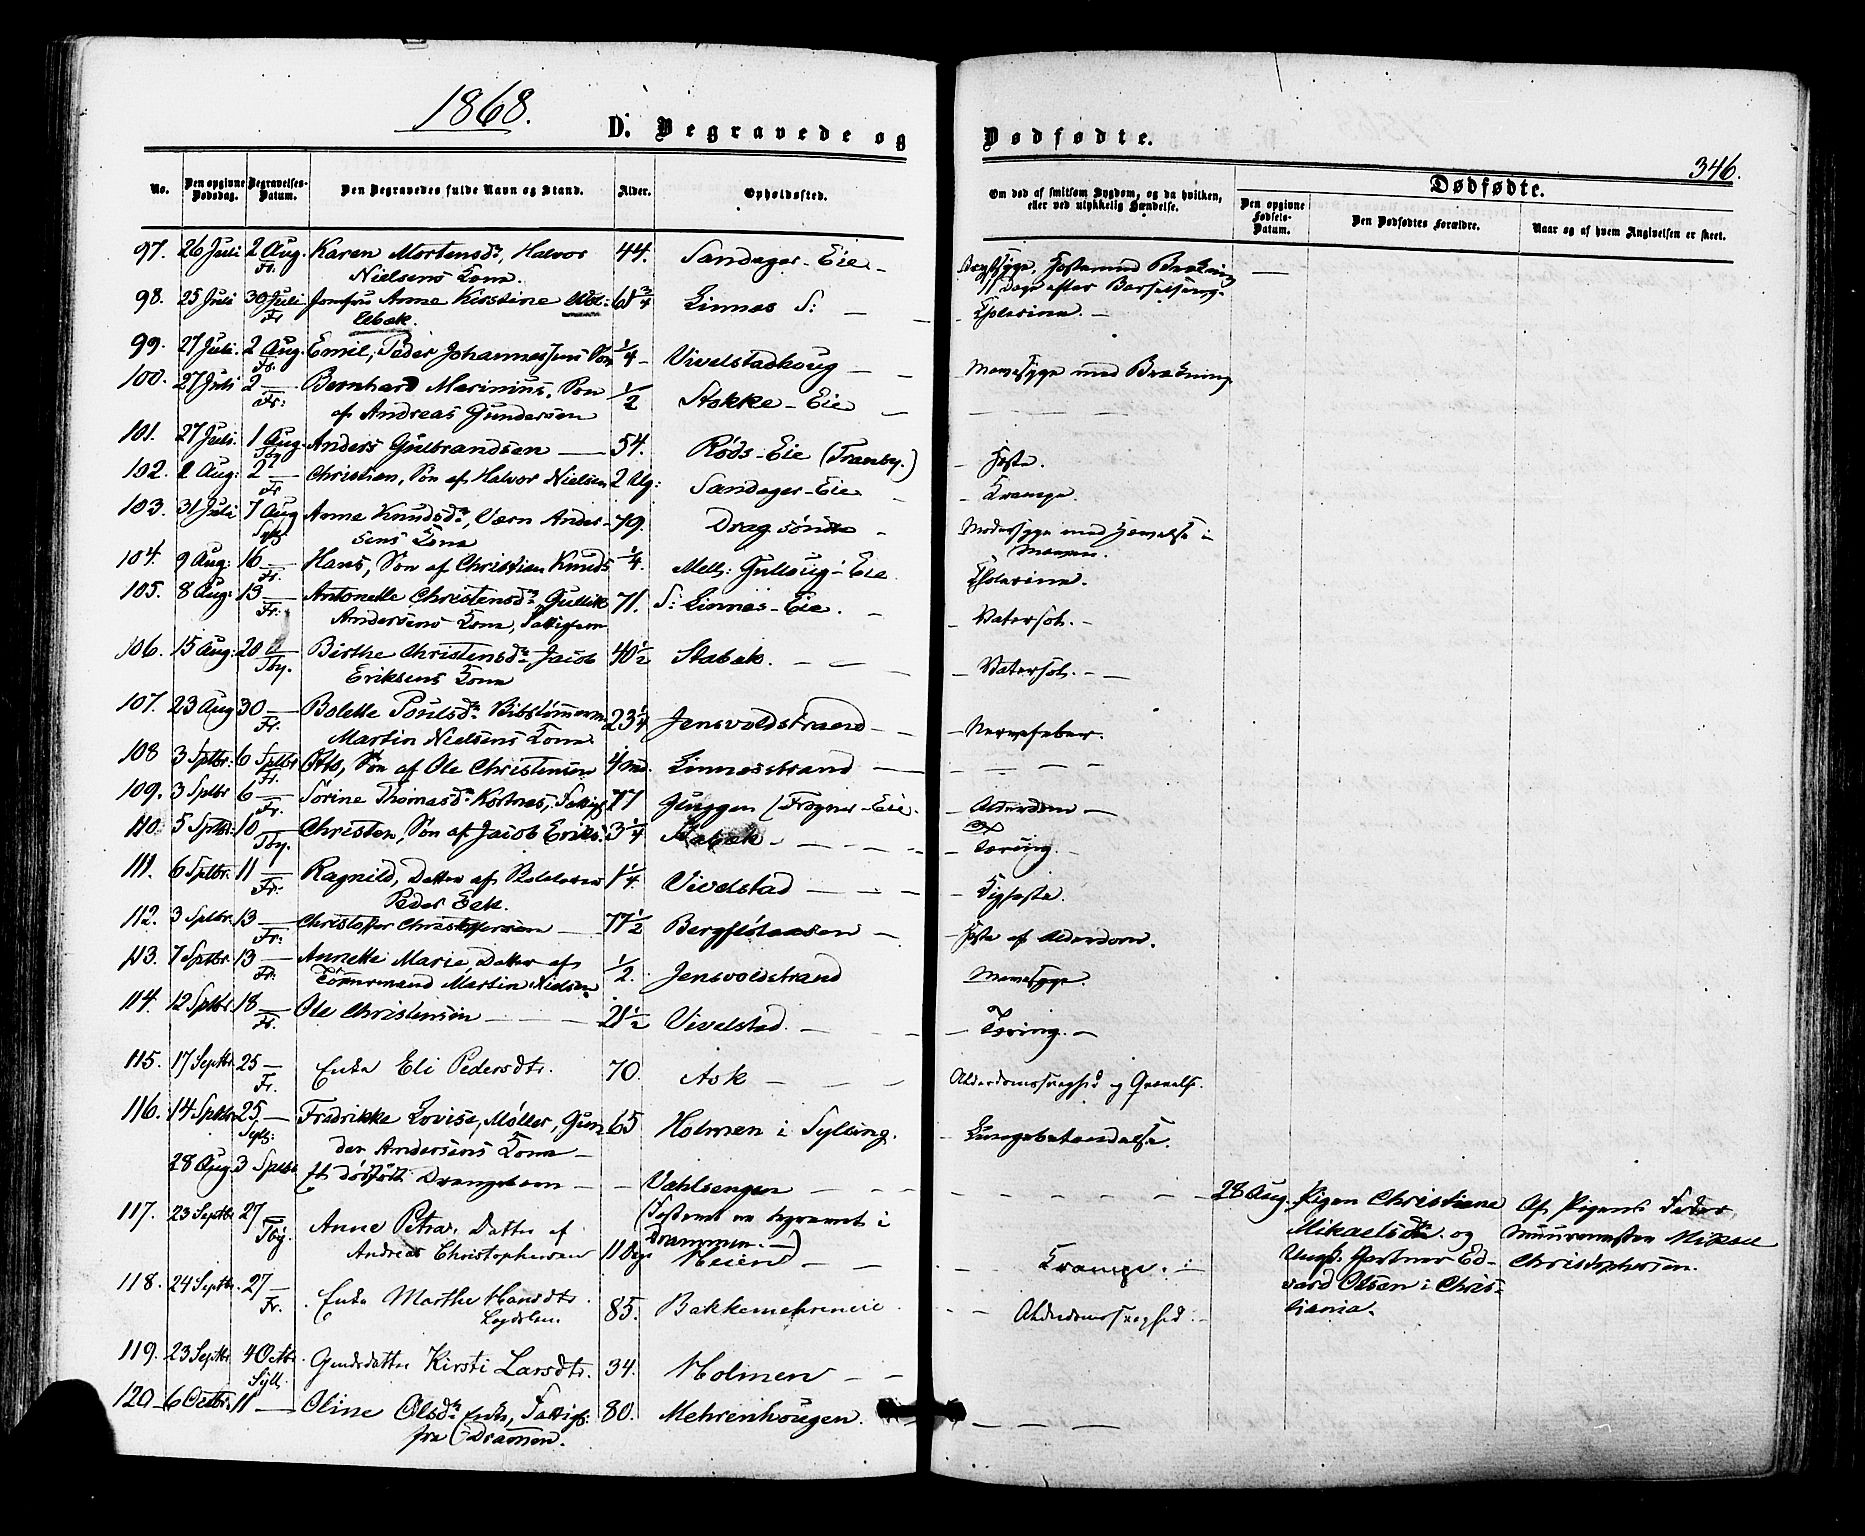 1868.
D. Begravede og
No. Den opgivne Dødsdag. Begravelses-Datum. Den Begravedes fulde Navn og Stand. Alder. Opholdssted.
97. 26 Juli 2 Aug. Karen Mortensdr, Halvor 44. Sandager-Eie
Fr. Nielsens Kone.
98. 25 Juli 30 Juli Jomfru Anne Kirstine 61 3/4 Linnes S:
Fr
99. 27 Juli. 2 Aug. Emil, Peder Johannessens Søn 1/4 Vivelstadhoug
Fr.
100. 27 Juli 2 — Bernhard Marinius, Søn 1/2 Stokke-Eie
Fr: af Andreas Gundersen
101. 27 Juli. 1 Aug. Anders Gulbrandsen 54. Røds-Eie (Tranby.)
102. 2 Aug: 2 — Christian, Søn af Halvor Nielsen 2 Dg: Sandager-Eie
Fr
103. 31 Juli 7 Aug Anne Knudsdr, Værn Ander- 79. Drag søndre
sens Kone
104. 9 Aug: 16 — Hans, Søn af Christian Knuds 1/4. Mell: Gulloug-Eie
Fr.
105. 8 Aug: 13 — Antonette Christensdr Gullik 71. S: Linnes-Eie.
Fr: Andersens Kone, Fattiglem
106. 15 Aug: 20 — Birthe Christensdr Jacob 40 1/2 Stabæk.
Tby. Eriksens Kone
107. 23 Aug 30 — Bolette Poulsdr 23 1/4 Jensvoldstrand
Fr. Martin Nielsens Kone.
108 3 Sptbr: 6 Sptbr Otto, Søn af Ole Christensen 4 md. Linnesstrand
Fr.
109. 3 Sptbr 6 — Sørine Thomasdr Kostnes, Fattigl 77 (Frogner-Eie
Fr.
110. 5 Sptbr: 10 — Christen, Søn af Jacob Eriks. 3 1/4 Stabæk
Tby.
111. 6 Sptbr. 11 — Ragnild, Datter af 1 1/4. Vivelstad
Fr. Peder Eek.
112. 3 Sptbr. 13 — Christoffer Christoffersen 77 1/2 Bergflødtaasen
Fr:
113. 7 Sptbr. 13 — Annette Marie, Datter af 1/2. Jensvoldstrand
Fr. Tømmermand Martin Nielsen
114. 12 Sptbr. 18 — Ole Christensen 21 1/2 Vivelstad.
Fr.
115. 17 Septbr 25 — Enke Eli Pedersdtr. 70. Ask
Fr.
116. 14 Sptbr 25 — Fredrikke Lovise, Møller, Gun 65 Holmen i Sylling.
Sylls: der Andersens Kone
28 Aug. 3 Sptbr Et dødfødt Drengebarn Vahlsengen
117. 23 Septbr 27 — Anne Petra. Datter af (Fosteret er begravet i
Tby. Drammen.)
Andreas Christophersen 11 Dage Heien
118. 24 Septbr. 27 — Enke Marthe Hansdtr. 85. Bakkemehreneie
Fr. Lægdslem.
119. 23 Septbr 4 Octbr Kirsti Larsdtr. 34. Holmen
Syll.
120 6 Octbr. 11 — Oline Olsdr (Enke, Fattigl: 80. Mehrenhougen.
fra Dramen.
Dødfødte.
346.
Om død af smitsom Sygdom, og da hvilken, eller ved ulykkelig Hændelse.
Dødfødte.
Den opgivne Fødsels-Datum. Den Dødfødtes Forældre. Naar og af hvem Angivelsen er skeet.
Brystsyge, Hoste med Brækning
11 Dage efter Barselseng.
Cholerine.
Mavesyge med Brækning
Hoste.
Krampe.
Cholerine.
Vatersot.
Vatersot.
Nervefeber.
Alderdom
Tæring.
Kighoste.
Hoste af Alderdom.
Mavesyge.
Tæring.
Alderdomssvaghed og
Lungebetændelse.
28 Aug. Pigen Christiane
Mikaelsdr. og
Ungk. Gartner Ed-
vard Olsen i Chris-
tiania.
Af Pigens Fader,
Muurmester Mikael
Christophersen.
Krampe.
Alderdomssvaghed.